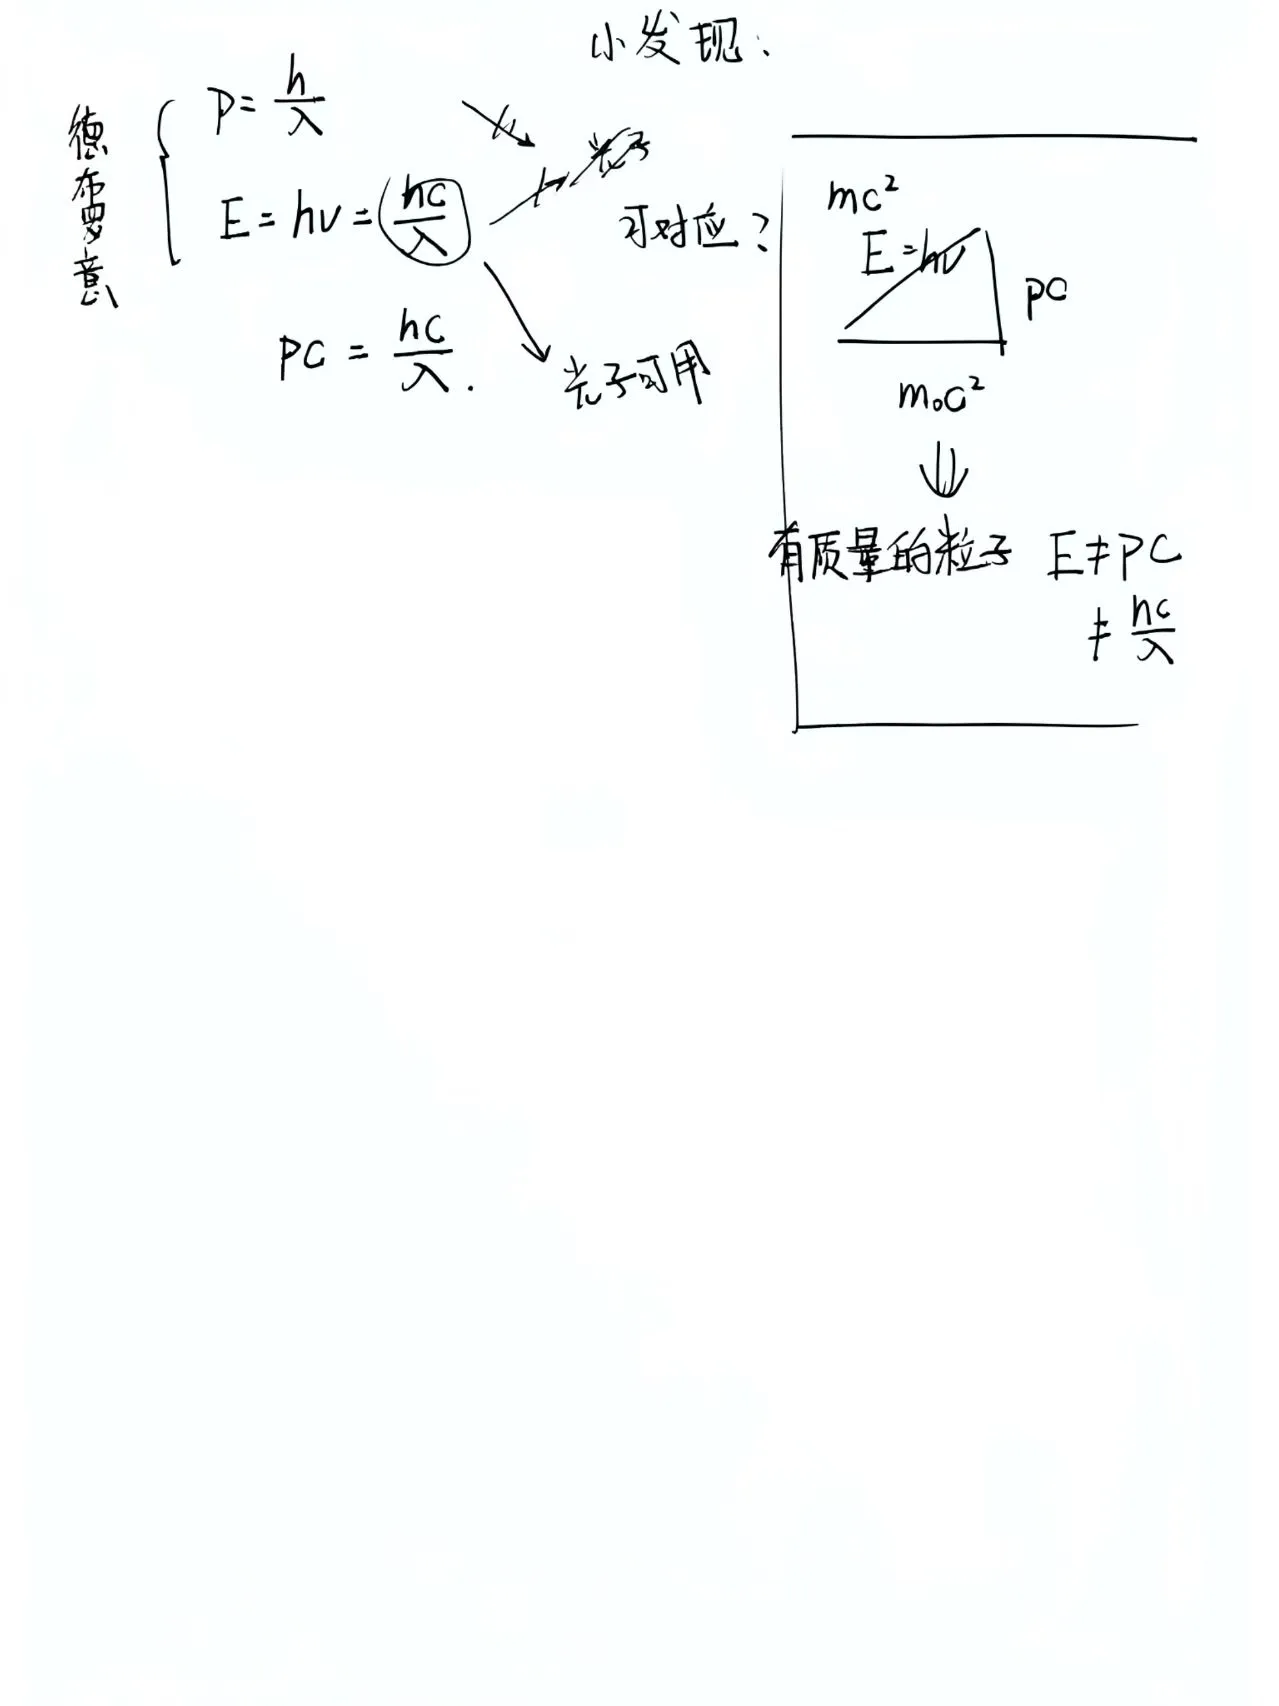 小发现:
德布罗意
P = h/λ
E = hν = hc/λ
光子
可对应?
PC = hc/λ.
光子可用
mc²
E = hν
PC
m₀c²
有质量的粒子 E ≠ PC
≠ hc/λ